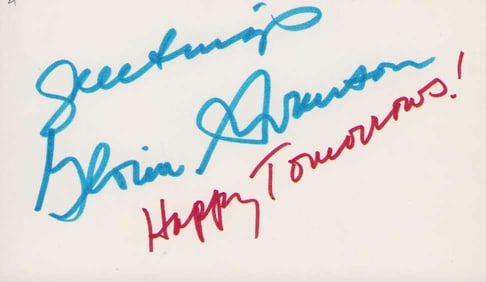 Greetings
Gloria Swanson
Happy Tomorrows!